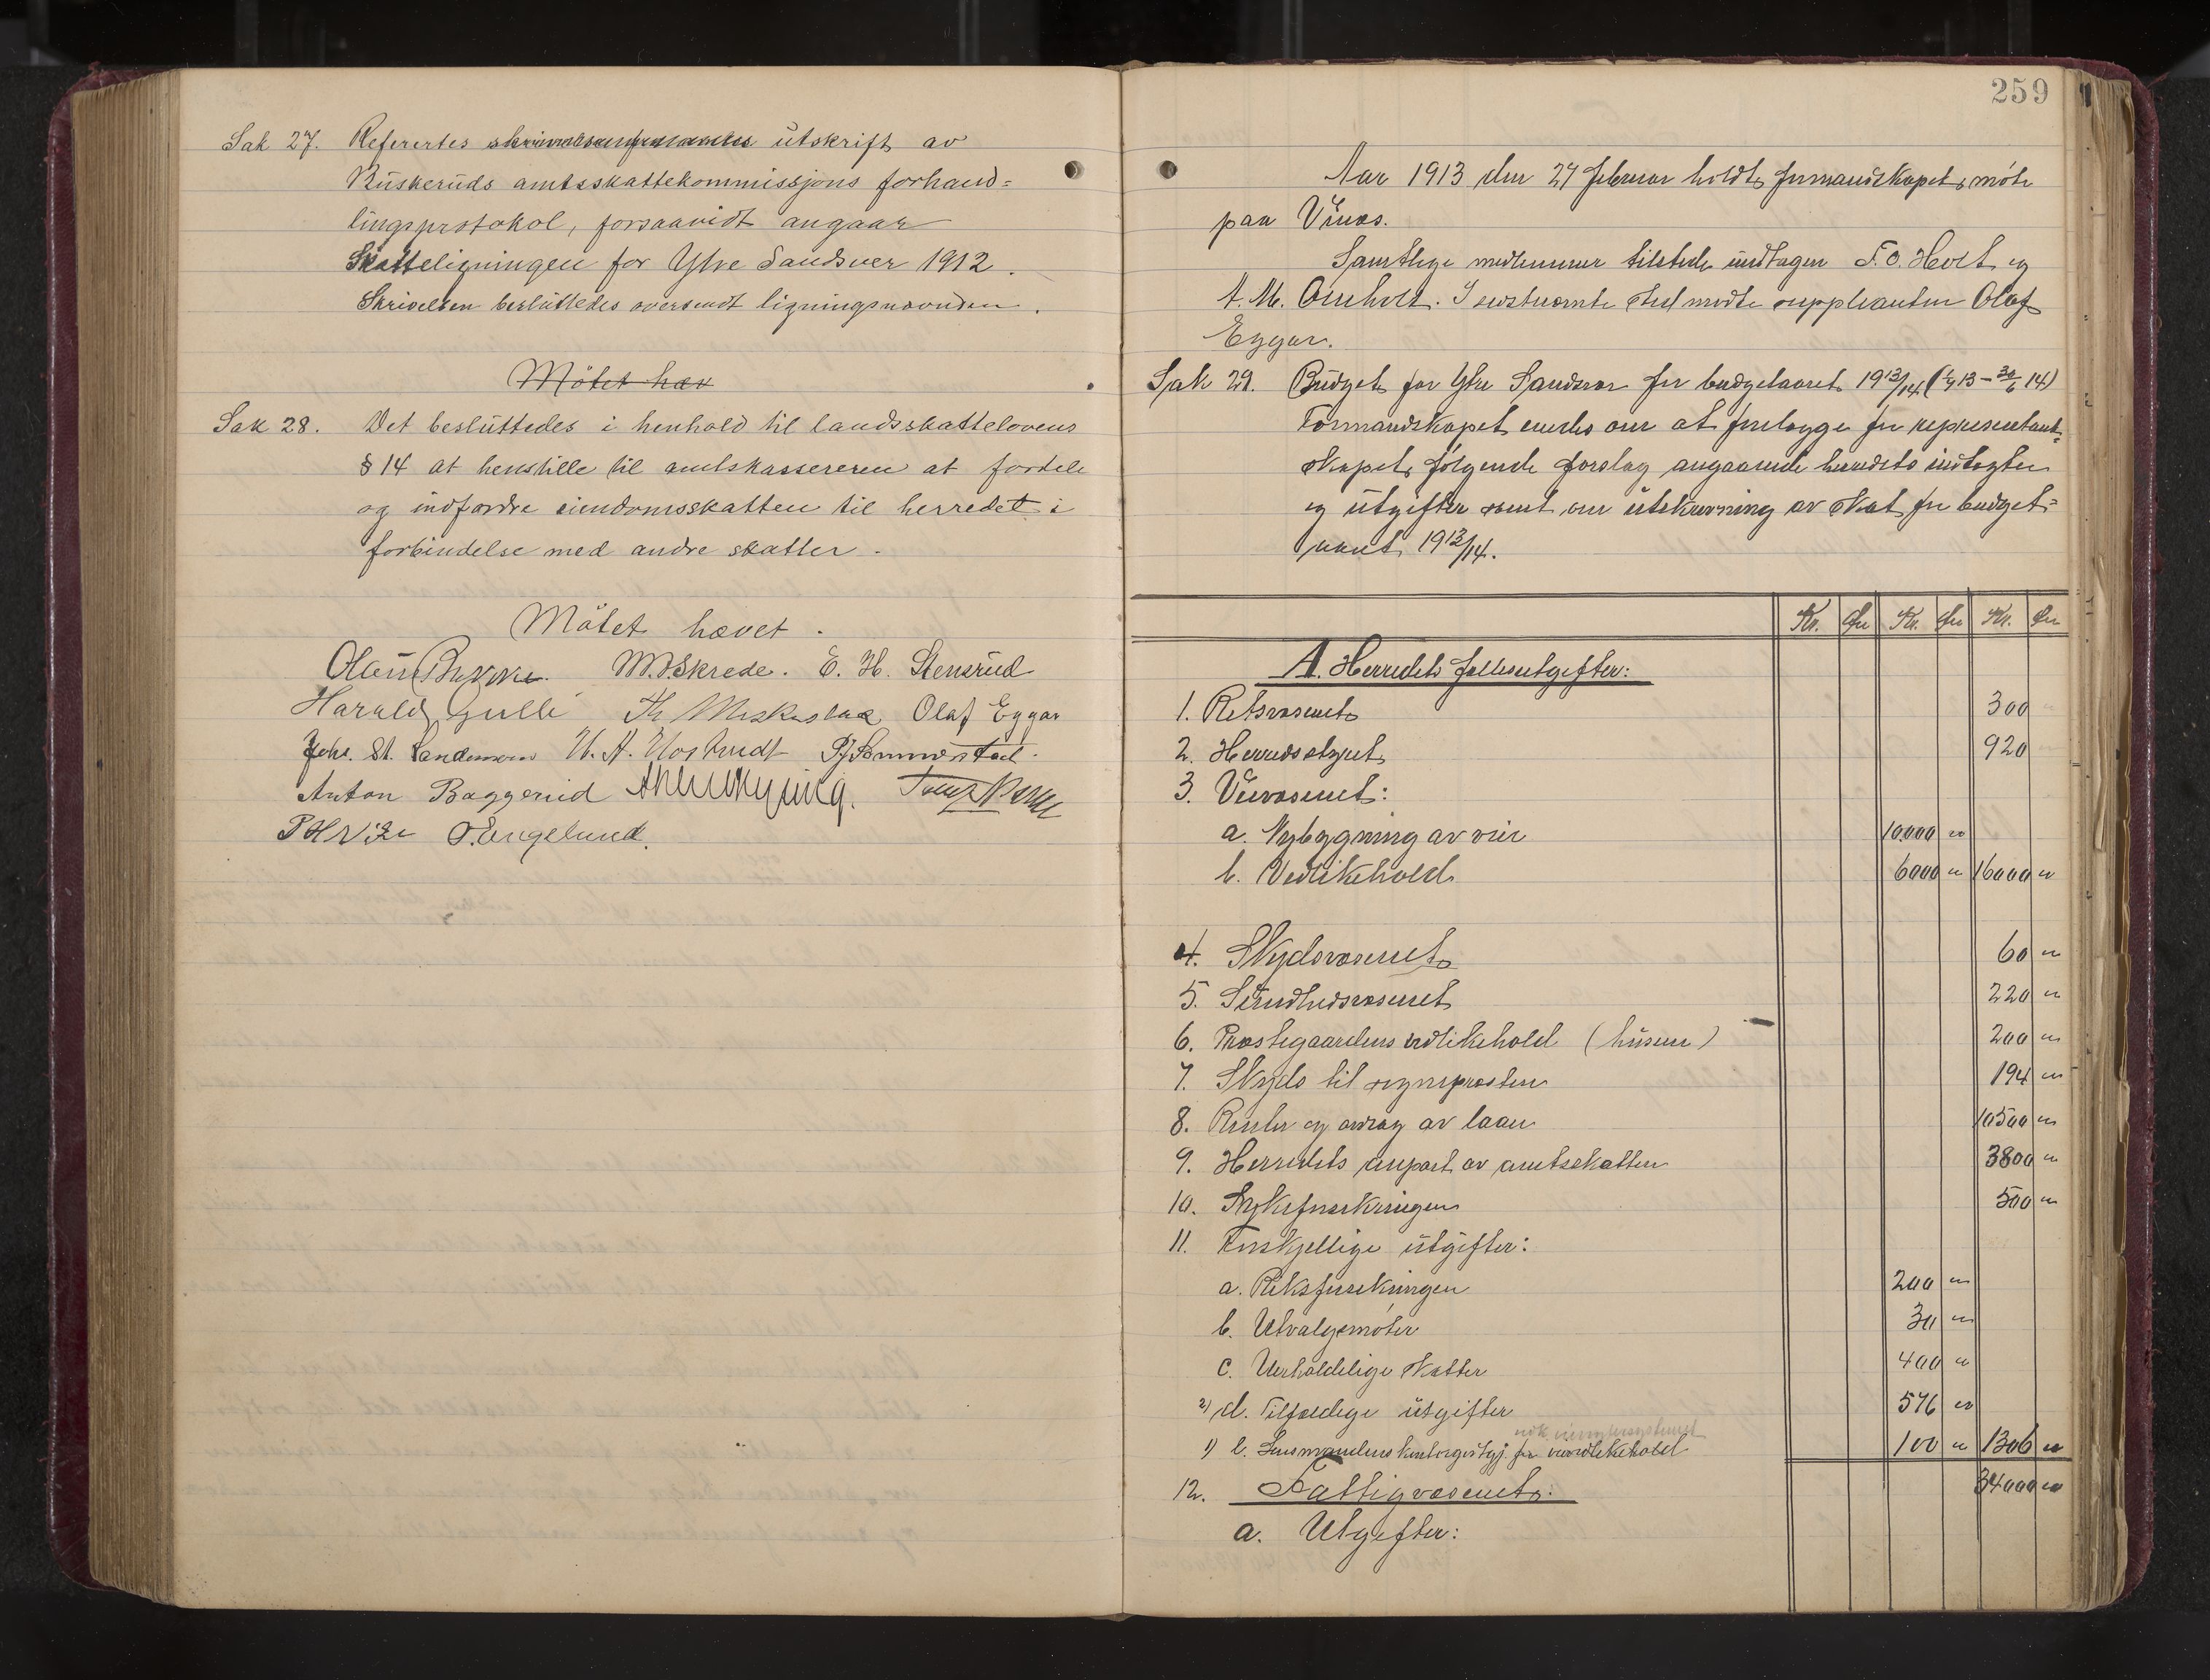 Sak 27. Referertes utskrift av
Buskeruds amtsskattekommissjons forhand=
lingsprotokol, forsaavidt angaar
Skatteligningen for Ytre Sandsver 1912.
Skrivelsen besluttedes oversendt ligningsnævnden.
Mötet hæv
Sak 28. Det besluttedes i henhold til landsskattelovens
§ 14 at henstille til amtskassereren at fordele
og indfordre eiendomsskatten til herredet i
forbindelse med andre skatter.
Mötet hævet.
Skrede. E. H. Stensrud
Harald Gulli Olaf Eggar
Anton Baggerud
O. Engelund.
259
Aar 1913 den 27 februar holdt formandskapet møte
paa Vinæs.
Samtlige medlemmer tilstede undtagen F. O. Hvolt og
A. M. Omholt. I sidstnevnte sted mødte suppleanten Olaf
Eggar.
Sak 29. Budget for Ytre Sandsver for budgetaaret 1913/14. (1/7 13 - 30/6 14)
Formandskapet enedes om at forelægge for representant=
skapet følgende forslag angaaende herredets indtægter
og utgifter samt om utskrivning av skat for budget=
aaret 1913/14.
Kr. Øre Kr. Øre Kr. Øre
A. Herredets fællesutgifter:
1. Retsvæsenet 300
2. Herredsstyret 920
3. Veivæsenet:
a. Nybygning av veier 10000 "
b. Vedlikehold 6000 " 16000 "
4. Skydsvæsenet 60 "
5. Sundhedsvæsenet 220 "
6. Præstegaardens vedlikehold (husene) 200 "
7. Skyds til sognepresten 194 "
8. Renter og avdrag av laan 10500 "
9. Herredets anpart av amtsskatten 3800 "
10. Sykeforsikringen 500 "
11. Forskjellige utgifter:
a. Riksforsikringen 200 "
b. Utvalgsmøter 30 "
c. Uerholdelige skatter 400 "
2) d. Tilfældige utgifter 576 "
1) e. Lensmandens kontorgodtgj. for veivedlikehold 100 " 1306 "
34000 "
12. Fattigvæsenet:
a. Utgifter: